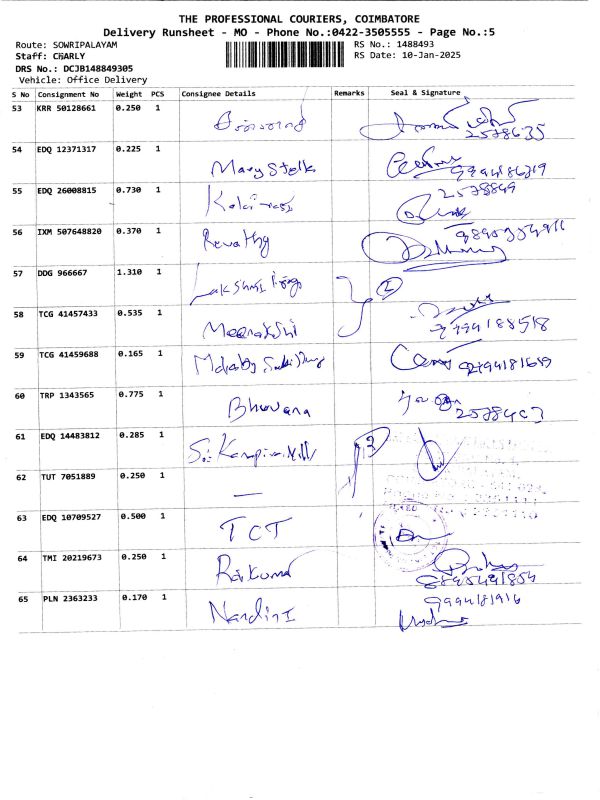 THE PROFESSIONAL COURIERS, COIMBATORE
Delivery Runsheet - MO - Phone No.:0422-3505555 - Page No.:5
Route: SOWRIPALAYAM
RS No.: 1488493
Staff: CHARLY
RS Date: 10-Jan-2025
DRS No.: DCJB148849305
Vehicle: Office Delivery
S No Consignment No Weight PCS Consignee Details Remarks Seal & Signature
53 KRR 50128661 0.250 1 2578635
54 EDQ 12371317 0.225 1 Mary Stella
55 EDQ 26008815 0.730 1 2578849
56 IXM 507648820 0.370 1 Revathy
57 DDG 966667 1.310 1 Lakshmi 2
58 TCG 41457433 0.535 1 Meenakshi 9994188518
59 TCG 41459688 0.165 1
60 TRP 1343565 0.775 1 Bhuvana 2578403
61 EDQ 14483812 0.285 1 Sri 2
62 TUT 7051889 0.250 1 —
63 EDQ 10709527 0.500 1 TCT
64 TMI 20219673 0.250 1 Raikumar
65 PLN 2363233 0.170 1 Nandini 9994181916